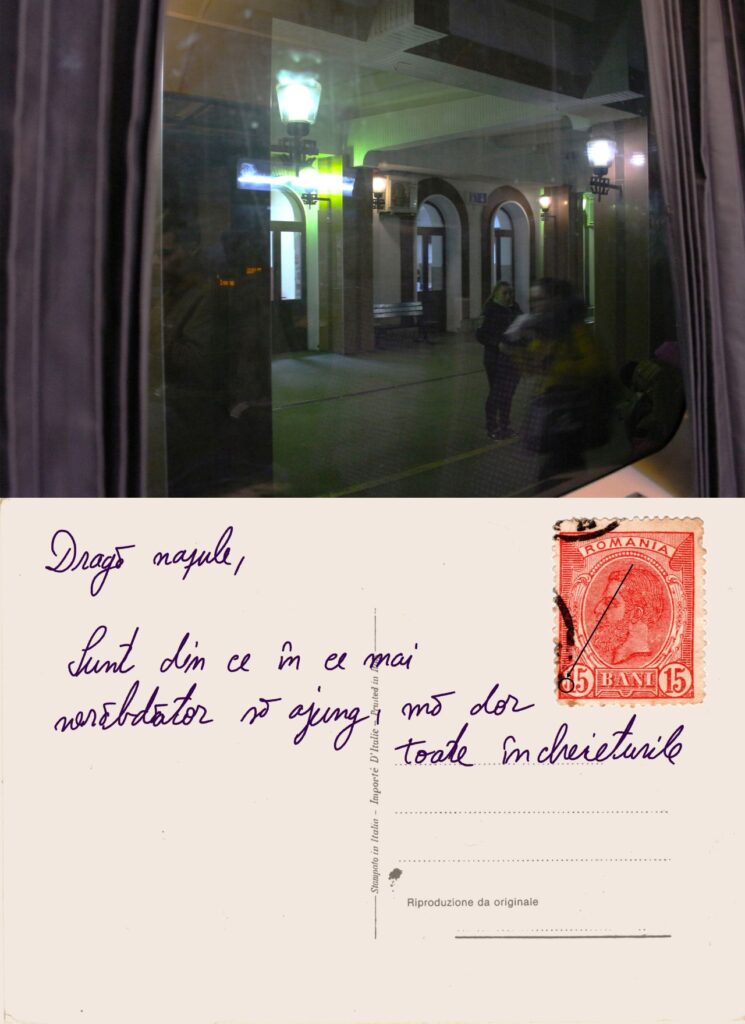 Dragă nașule,
ROMANIA
15 BANI 15
Sunt din ce în ce mai
nerăbdător să ajung, mă dor
toate încheieturile
Stampato in Italia - Importé D'Italie - Printed in
Riproduzione da originale